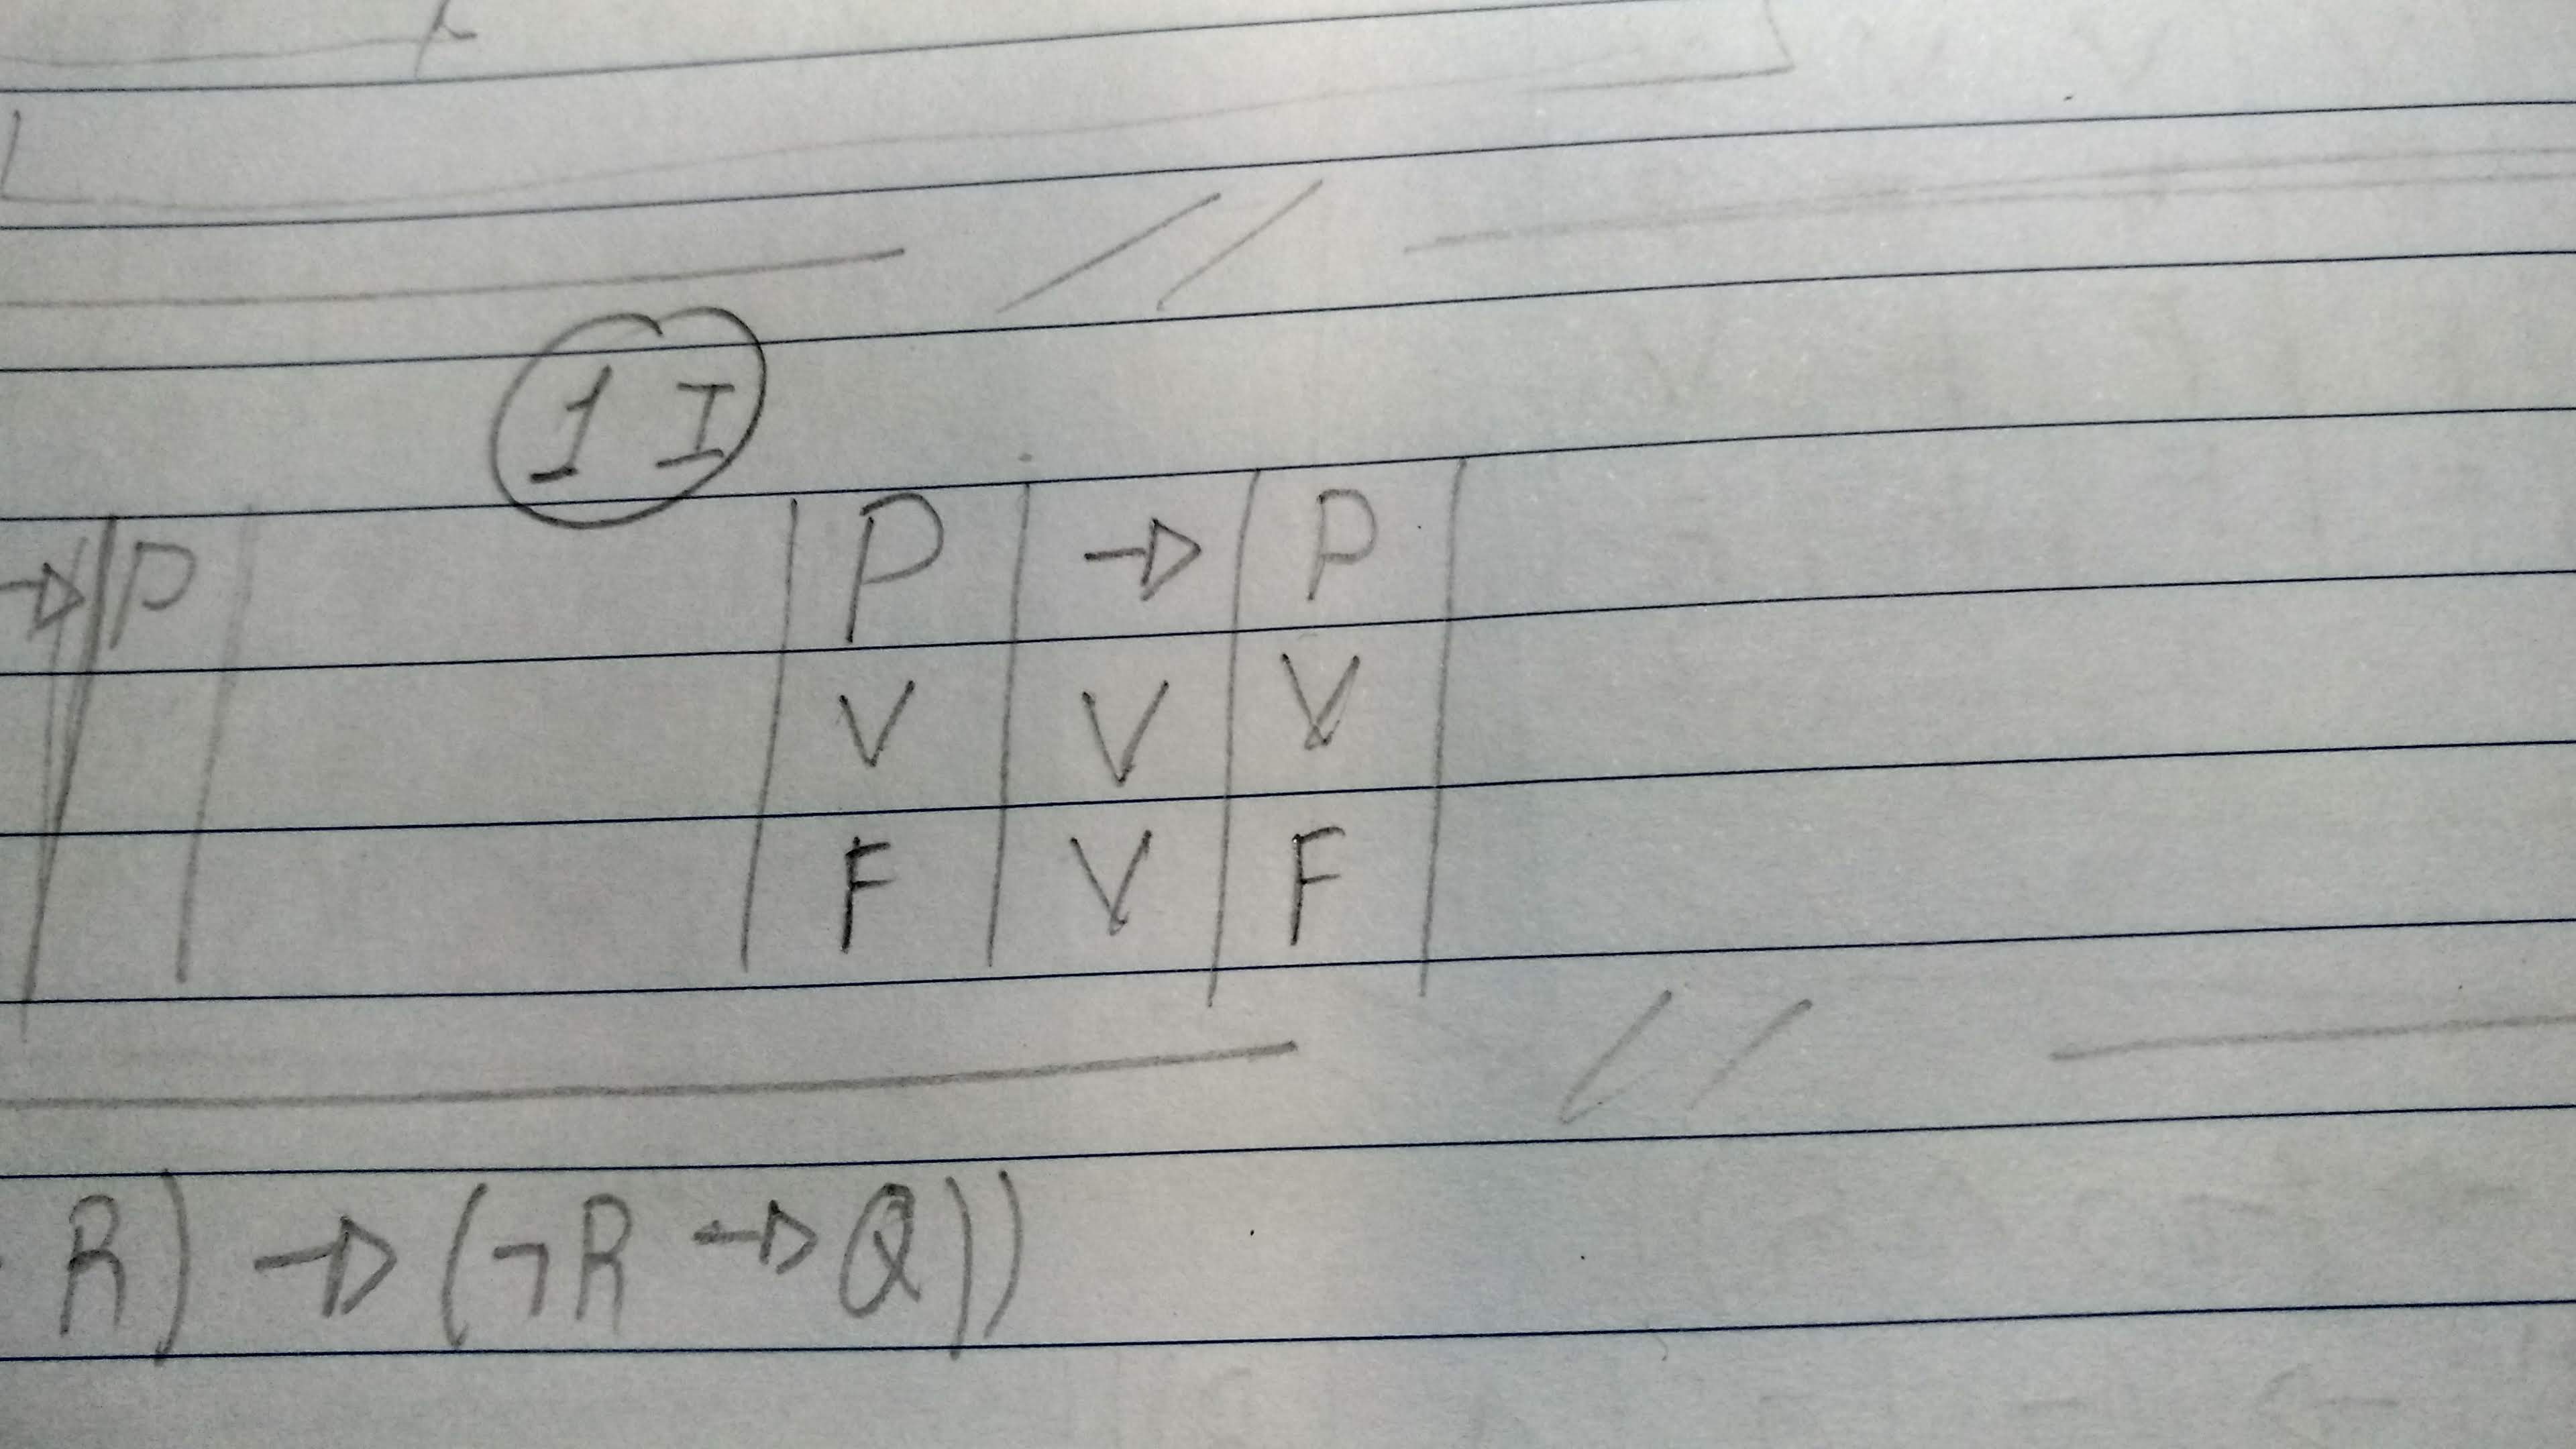 1 I
→ P P → P
V V V
F V F
R) → (¬R → Q))